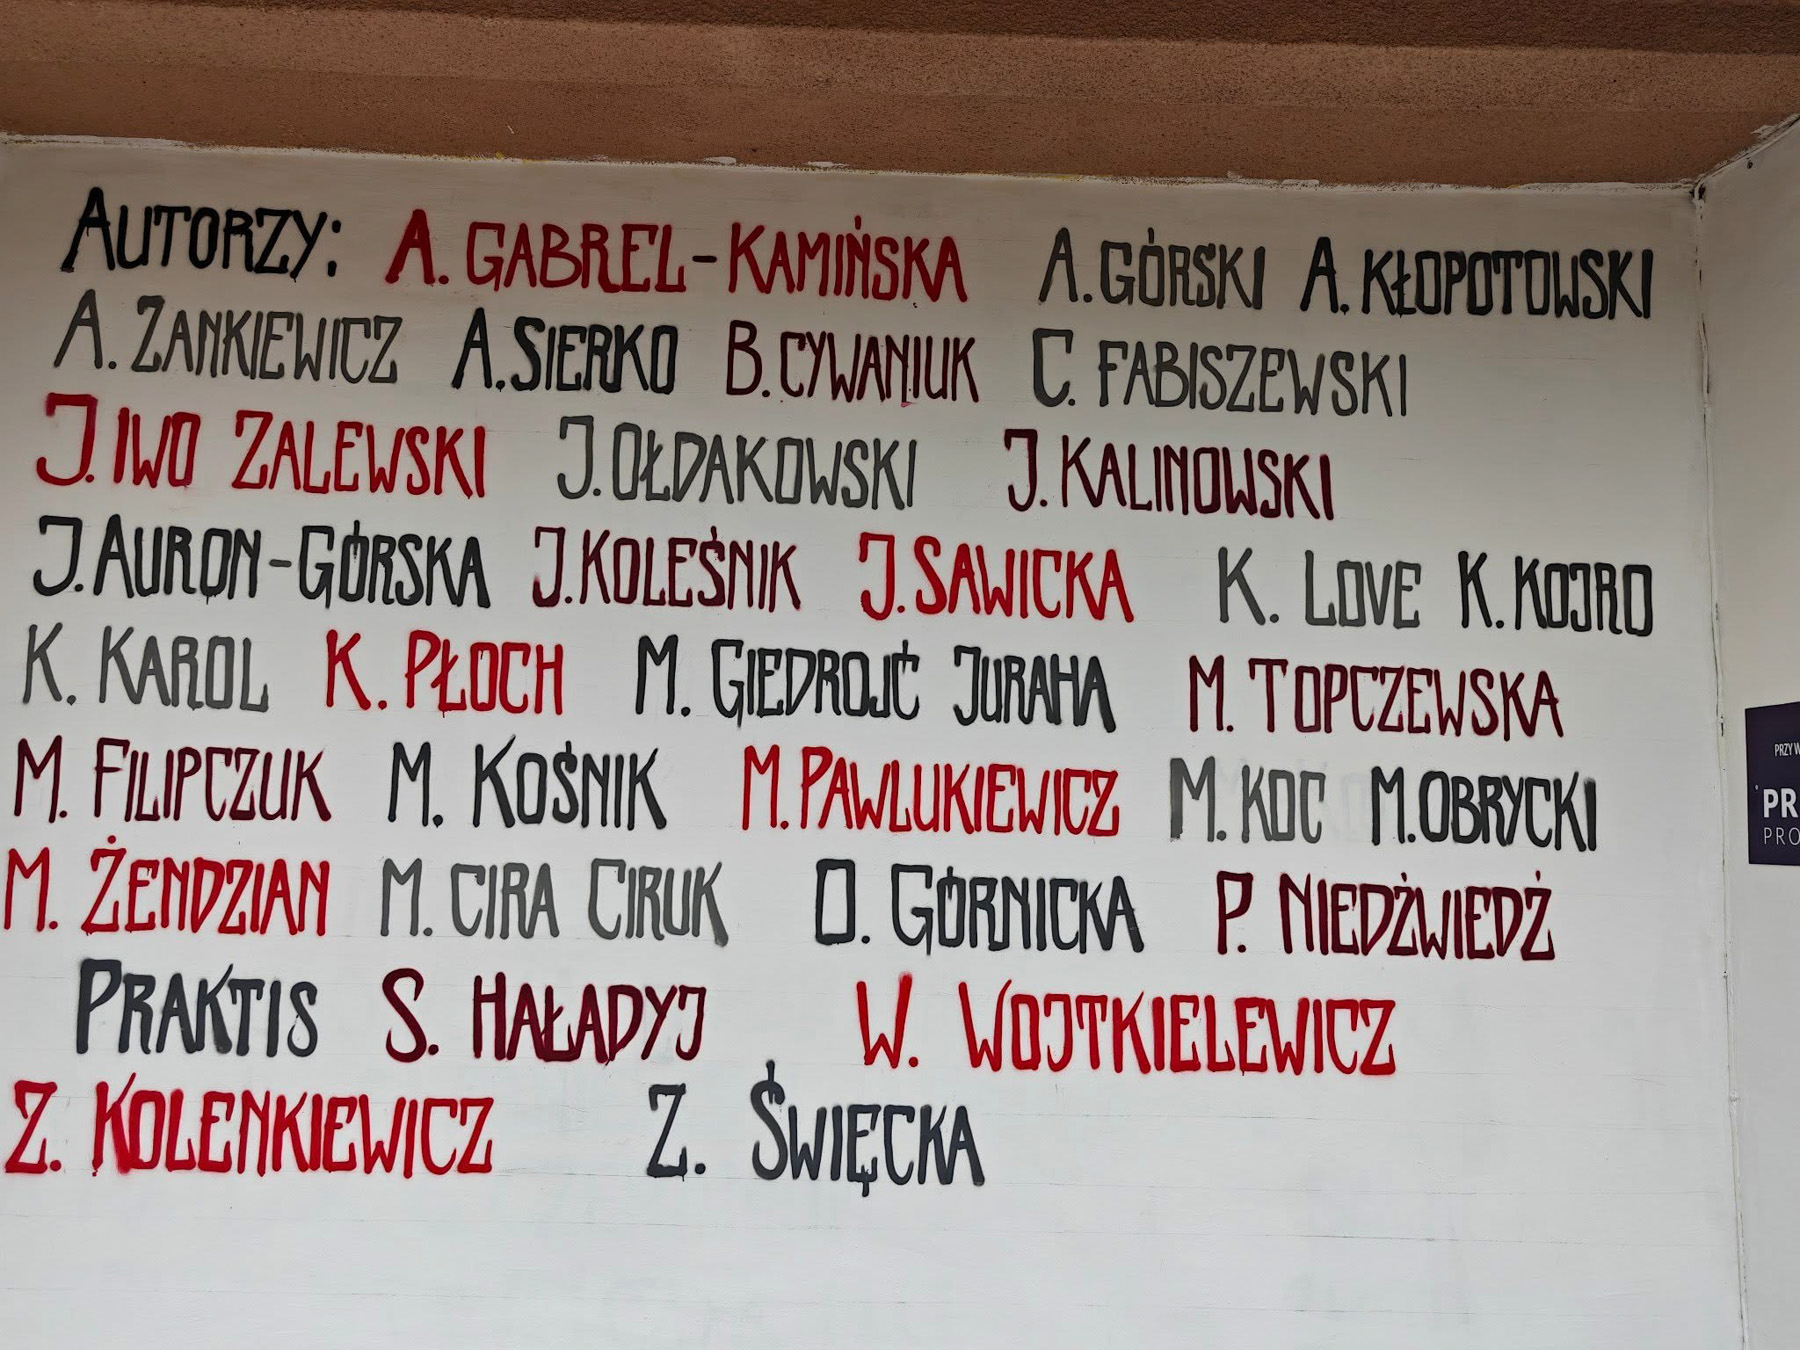 AUTORZY: A. GABREL-KAMIŃSKA A. GÓRSKI A. KŁOPOTOWSKI
A. ZANKIEWICZ A. SIERKO B. CYWANIUK C. FABISZEWSKI
J. IWO ZALEWSKI J. OŁDAKOWSKI J. KALINOWSKI
J. AURON-GÓRSKA J. KOLEŚNIK J. SAWICKA K. LOVE K. KOJRO
K. KAROL K. PŁOCH M. GIEDROJĆ JURAHA M. TOPCZEWSKA
M. FILIPCZUK M. KOŚNIK M. PAWLUKIEWICZ M. KOC M. OBRYCKI
M. ŻENDZIAN M. CIRA CIRUK O. GÓRNICKA P. NIEDŹWIEDŹ
PRAKTIS S. HAŁADYJ W. WOJTKIELEWICZ
Z. KOLENKIEWICZ Z. ŚWIĘCKA